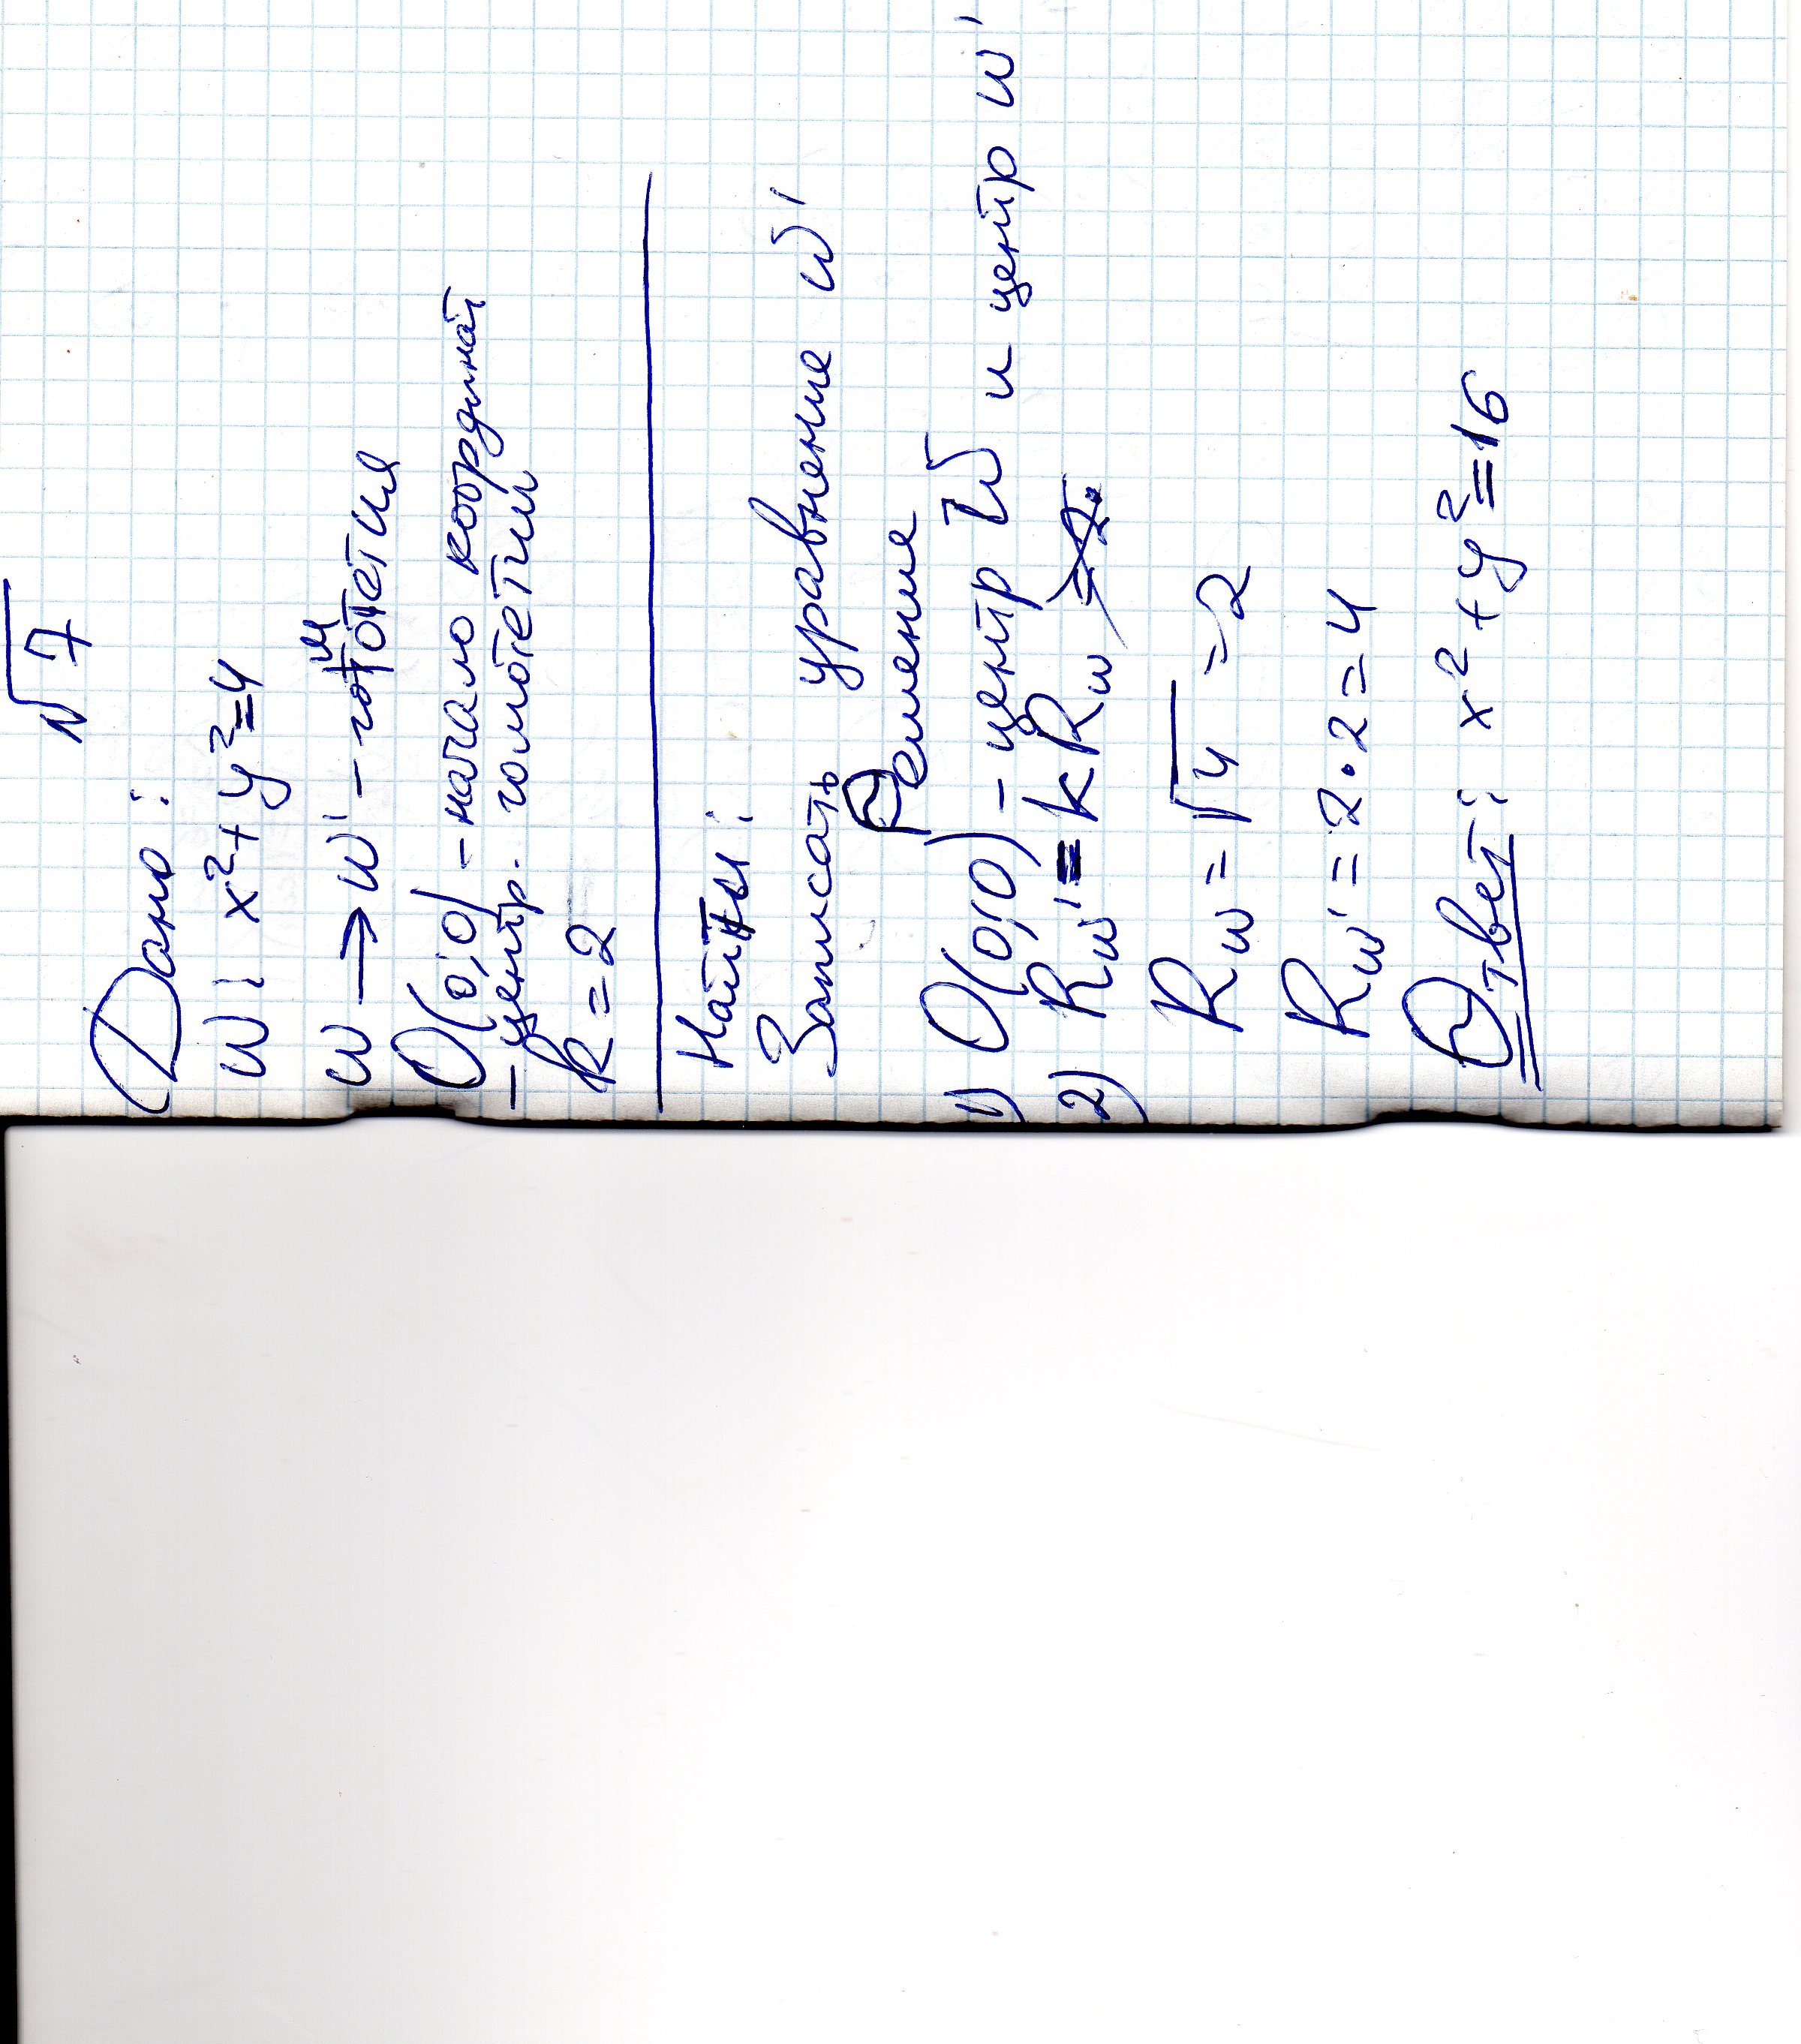 √7
Дано:
W: x²+y²=4
W → W' – гомотетия
O(0;0) – начало координат
– центр. гомотетии
k=2
Найти:
Записать уравнение W'
Решение
1) O(0;0) – центр W и центр W'
2) R_W' = kR_W
R_W = √4 = 2
R_W' = 2·2=4
Ответ: x²+y²=16